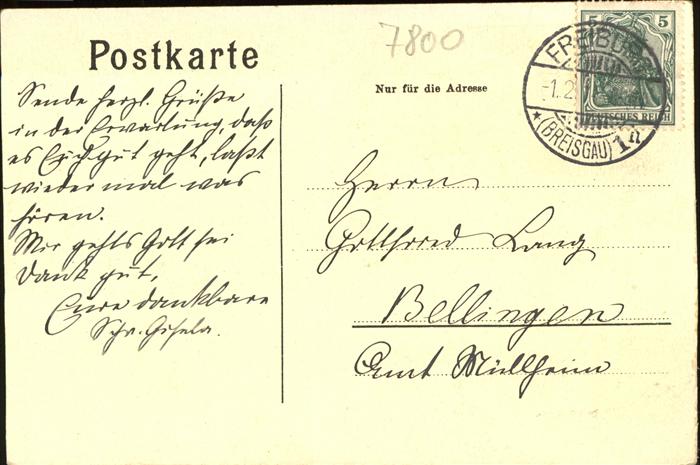 Postkarte
7800
Nur für die Adresse
5 5
DEUTSCHES REICH
FREIBURG
-1.2
★(BREISGAU) 1
Sende herzl. Grüße
in der Erwartung, daß
es Euch gut geht, laßt
wieder mal was
hören.
Mir gehts Gott sei
Dank gut,
Eure dankbare
Schw. Gisela.
Herrn
Gottfried Lang
Bellingen
Amt Müllheim